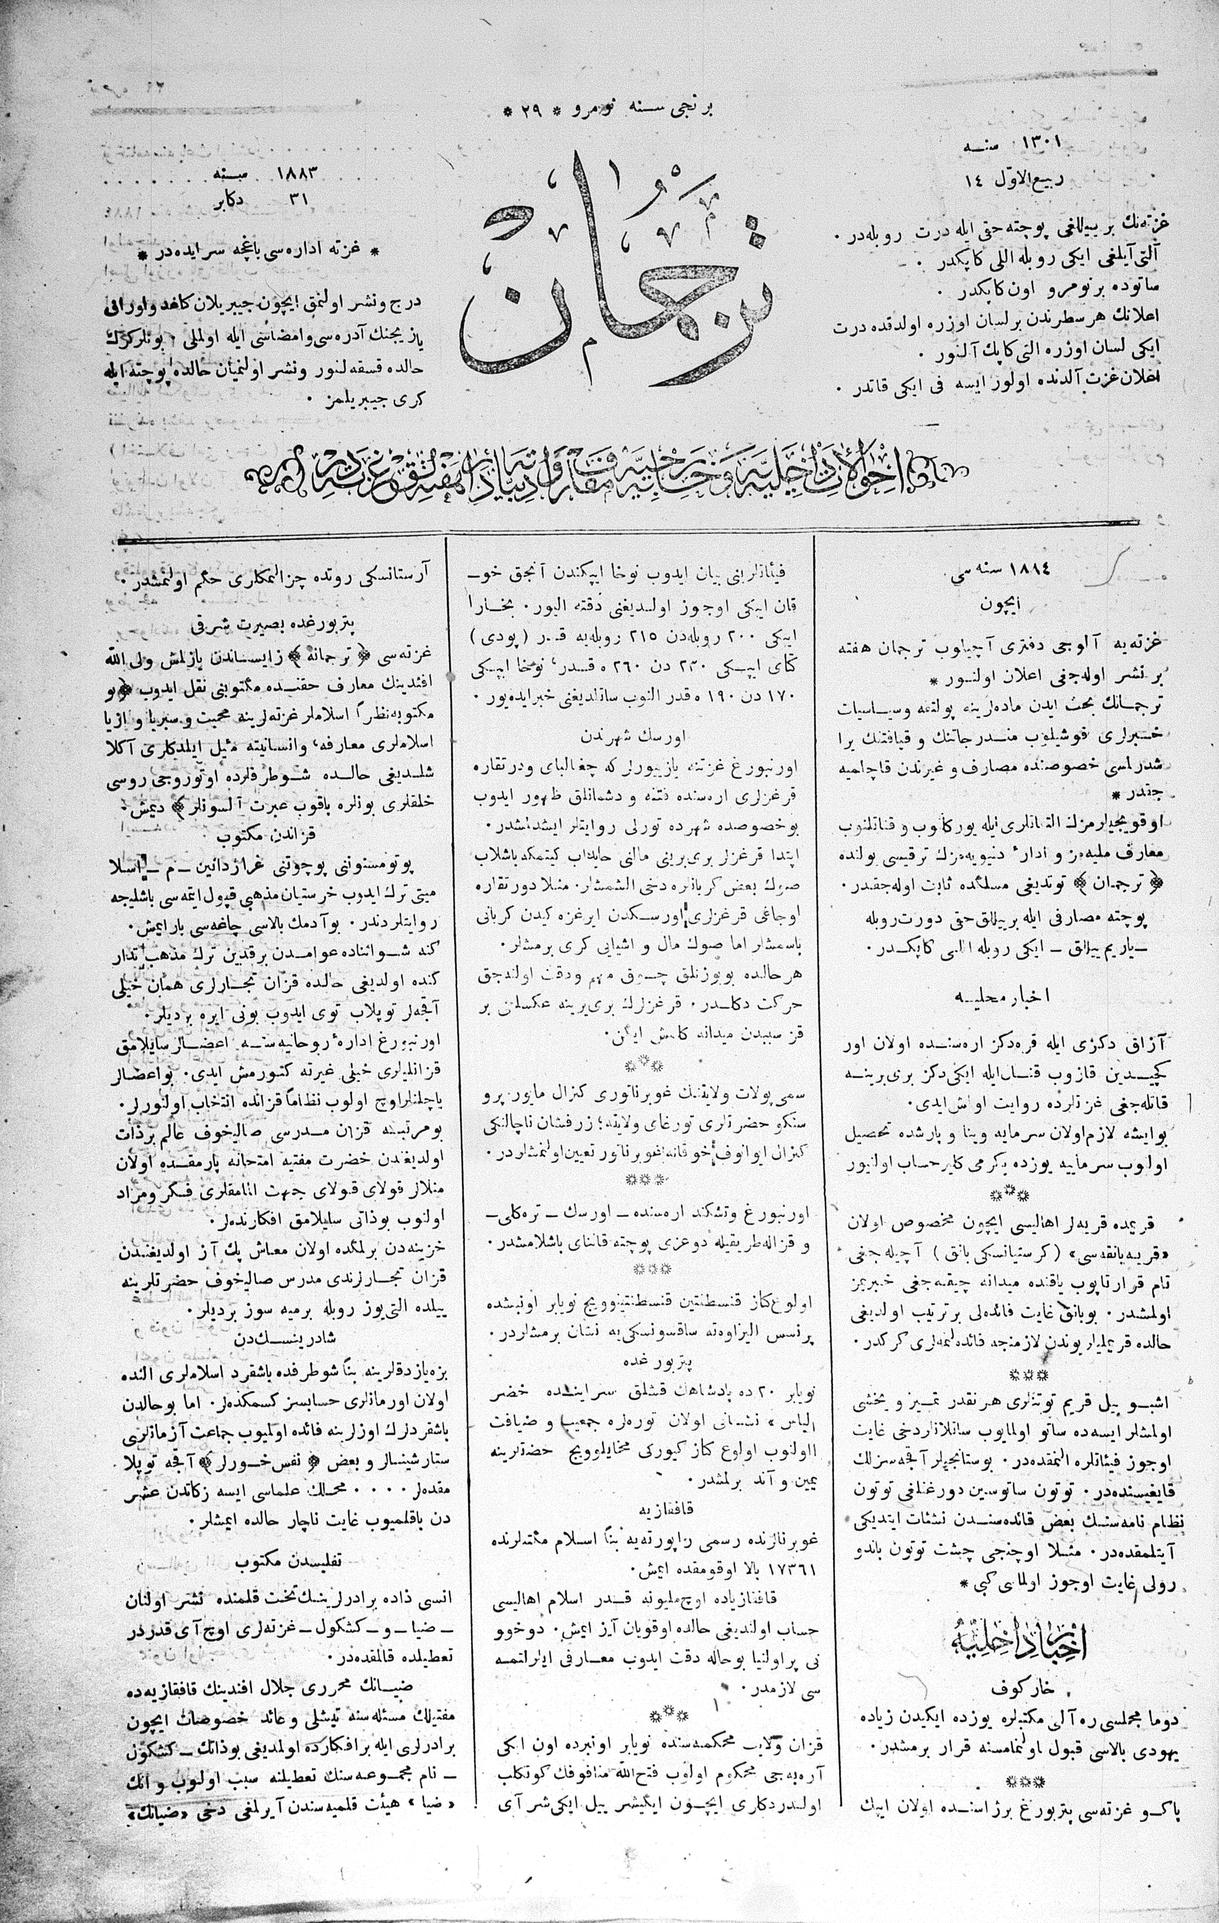 برنجى سنه نومرو * ٢٩ *
١٣٠١ سنه
ربيع الاول ١٤
غزته‌نك بر ييللغى پوچته حقى ايله درت روبله‌در .
آلتى آيلغى ايكى روبله اللى كاپكدر .
ساتوده بر نومرو اون كاپكدر .
اعلانك هر سطرندن بر لسان اوزره اولدقده درت
ايكى لسان اوزره التى كاپك آلنور .
اعلان غزت آلدنده اولور ايسه فى ايكى قاتدر .
ترجمان
١٨٨٣ سنه
٣١ دكابر
* غزته اداره‌سى باغچه سرايده‌در *
درج و نشر اولنمق ايچون جيبريلان كاغد و اوراقى
يازيجنك آدره‌سى و امضاسى ايله اولملى ، بونلر كرك
حالده قسقه لنور و نشر اولنميان حالده پوچته ايله
كرى جيبريلمز .
احوالات داخليه و خارجيه
١٨٨٤ سنه سي
ايچون
غزته‌يه آلوجى دفترى آچيلوب ترجمان هفته
بر نشر اوله‌جغى اعلان اولنور *
ترجمانك بحث ايدن ماده‌لرينه پولتقه و سياسيات
خبرلرى قوشيلوب مندرجاتنك و قيافتنك يرا
شدرلسى خصوصنده مصارف و غيرتدن قاچلميه
جقدر *
اوقويجيلرمزك التفاتلرى ايله يوركلنوب و قناتلنوب
معارف مليه‌مز و دنيويه‌مزك ترقيسى يولنده
﴿ ترجمان ﴾ توتديغى مسلكده ثابت اوله‌جقدر .
پوچته مصارفى ايله بر ييللق حقى دورت روبله
ـ ياريم ييللق ـ ايكى روبله اللى كاپكدر .
اخبار محليه
آزاق دكزى ايله قره‌دكز اره‌سنده اولان اور
كچيدين قازوب قنال ايله ايكى دكز برى برينه
قاتله‌جغى غزتلرده روايت اولنش ايدى .
بو ايشه لازم اولان سرمايه وينا و پارشده تحصيل
اولوب سرمايه يوزده يكرمى كلير حساب اولنيور
***
قريمده قريه‌لر اهاليسى ايچون مخصوص اولان
«قريه بانقه‌سى» (كرستيانسكى بانق) آچيله‌جغى
تام قرارتاپوب ياقنده ميدانه چيقه‌جغى خبريمز
اولمشدر . بو بانق غايت فائده‌لى بر ترتيب اولديغى
حالده قريمليلر بوندن لازمنجه فائده‌لنملرى كركدر .
***
اشبو ييل قريم توتنلرى هر نقدر تميز و يخشى
اولمشلر ايسه‌ده ساتو اولمايوب ساتلانلر دخى غايت
اوجوز فيئاتلره النمقده‌در . بوستانجيلر آقچه‌سزلك
قايغيسنده‌در . توتون ساتوسين دورغنلغى توتون
نظام نامه‌سنك بعض قائده‌سندن نشئات ايتديكى
آيتلمقده‌در . مثلا اوچنجى چشت توتون باندو
رولى غايت اوجوز اولماى كبى *
اخبار داخليه
خاركوف
دوما مجلسى ره‌آلى مكتبلره يوزده ايكيدن زياده
يهودى بالاسى قبول اولنمامسنه قرار برمشدر .
***
پاكو غزته‌سى پتربورغ برژاسنده اولان ايپك
فيئاتلرينى بيان ايدوب نوخا ايپكندن آنجق خو-
قان ايپكى اوجوز اولديغنى دقته اليور . بخارا
ايپكى ٢٠٠ روبله‌دن ٢١٥ روبله‌يه قدر (پودى)
كتاى ايپكى ٢٣٠ دن ٢٦٠ ه قدر ، نوخا ايپكى
١٧٠ دن ١٩٠ ه قدر النوب ساتلديغنى خبر ايده‌يور .
اورسك شهرندن
اورنبورغ غزتنه يازييورلر كه چغالباى و درتقاره
قرغزلرى اره‌سنده فتنه و دشمانلق ظهور ايدوب
بو خصوصده شهرده تورلى روايتلر ايشدلمشدر .
ابتدا قرغزلر برى برينى مالنى حايداب كيتمكه باشلاب
صوك بعض كربانلره دخى الشمشلر . مثلا دورتقاره
اوجاغى قرغزلرى اورسكدن ايرغزه كيدن كربانى
باسمشلر اما صوك مال و اشيايى كرى برمشلر .
هر حالده بو يوزنلق چوق مهم و دقت اولنه‌جق
حركت دكلدر . قرغزلرك برى برينه عكسلنى بر
قز سببدن ميدانه كلمش ايكن .
***
سمى پولات ولايتنك غوبرناتورى كنرال مايور پرو
سنكو حضرتلرى تورغاى ولايته ؛ زرفشان ناچالنكى
كنرال ايوانوف خوقانه غوبرناتور تعيين اولنمشلردر .
***
اورنبورغ و تشكند اره‌سنده ـ اورسك ـ تره‌كلى ـ
و قزاله طريقيله دوغرى پوچته قاتناى باشلامشدر .
***
اولوغ كناز قنسطنتين قنسطنتينوويچ نويابر اونبشده
پرنسس اليزاوه‌ته ساقسونسكى‌يه نشان برمشلردر .
پتربورغده
نويابر ٢٠ ده پادشاهك قشلق سراينده خضر
الياس نشانى اولان توره‌لره جمعيت و ضيافت
اولنوب اولوغ كناز كيوركى ميخايلوويچ حضرتلرينه
يمين و آند برلمشدر .
قافقازيه
غوبرنالرنده رسمى راپورته‌يه بنأ اسلام مكتبلرنده
١٧٣٦١ بالا اوقومقده ايمش .
قافقازياده اوچ مليونه قدر اسلام اهاليسى
حساب اولنديغى حالده اوقويان آز ايمش . دوخوو
نى پراولنيا بو حاله دقت ايدوب معارفى ايلرلتمه
سى لازمدر .
***
قزان ولايت محكمه‌سنده نويابر اونبرده اون ايكى
آره‌يه‌جى محكوم اولوب فتح الله منافوفك كونكلب
اولدردكلرى ايچون ايگيشر ييل ايكى‌شر آى
آرستانسكى روتده جزالنمكلرى حكم اولنمشدر .
پتربورغده بصيرت شرقى
غزته‌سى ﴿ ترجمانه ﴾ زايساندن يازلمش ولى الله
افندينك معارف حقنده مكتوبنى نقل ايدوب ﴿بو
مكتوبه نظرأ اسلاملر غزته‌لرينه محبت و سبريا و ازيا
اسلاملرى معارفه ، و انسانيته ميل ايلدكلرى آكلا
شلديغى حالده شو طرفلرده اوتوروجى روسى
خلقلرى بونلره باقوب عبرت آلسونلر﴾ ديمش .
قزاندن مكتوب
پوتومستوننى پوچوتنى غراژدانين ـ م ـ اسلا
ميتى ترك ايدوب خرستيان مذهبى قبول ايتمه‌سى باشليجه
روايتلردندر . بو آدمك بالاسى چاغه‌سى بار ايمش .
كنه شو اثناده عوامدن بر قدين ترك مذهب ايتدار
كنده اولديغى حالده قزان تجارلرى همان خيلى
آقچه‌لر توپلاب توى ايدوب بونى ايره برديلر .
اورنبورغ اداره‌ٔ روحانيه‌سنه اعضالر سايلامق
قزانليلرى خيلى غيرته كتورمش ايدى . بو اعضالر
ياچلنلر اوچ اولوب نظاماً قزانده انتخاب اولنورلر .
بو مرتبه قزان مدرسى صاليخوف عالم بر ذات
اولديغندن حضرت مفتيه امتحانه پارمقده اولان
منلالر قولاى قولاى جهت الماملرى فكر و مراد
اولنوب بو ذاتى سايلامق افكارنده‌لر .
خزينه‌دن برلمكده اولان معاش پك آز اولديغندن
قزان تجارلرندى مدرس صاليخوف حضرتلرينه
ييلده التى يوز روبله برميه سوز برديلر .
شادرينسكدن
بزه يازدقلرينه بنأ شو طرفده باشقرد اسلاملرى النده
اولان اورمانلرى حسابسز كسمكده‌لر . اما بو حالدن
باشقردلرك اوزلرينه فائده اولميوب جماعت آزمانلرى
ستارشينالر و بعض ﴿ نفس خورلر ﴾ آقچه توپلا
مقده‌لر . . . . محلك علماسى ايسه زكاتدن عشر
دن باقلميوب غايت ناچار حالده ايمشلر .
تفليسدن مكتوب
انسى ذاده برادرلرينك تحت قلمنده نشر اولنان
ـ ضيا ـ و ـ كشكول ـ غزته‌لرى اوچ آى قدردر
تعطيلده قالمقده‌در .
ضيانك محررى جلال افندينك قافقازيه‌ده
مفتيلك مسئله‌سنه تيشلى و عائد خصوصات ايچون
برادرلرى ايله بر افكارده اولمديغى بو ذاتك ـ كشكول
ـ نام مجموعه‌سنك تعطيلنه سبب اولوب و انك
«ضيا» هيئت قلميه‌سندن آيرلمغى دخى «ضيانك»